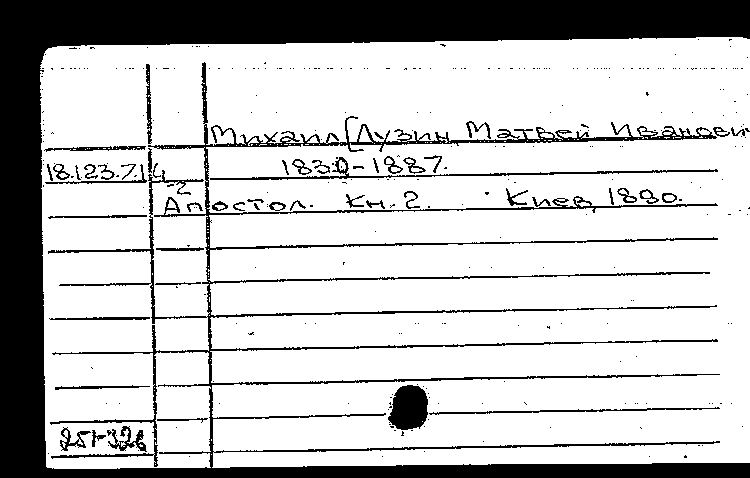 Михаил [Лузин, Матвей Иванови
18.123.7.14 1830-1887.
-2
Апостол. Кн. 2. Киев, 1880.
251-326